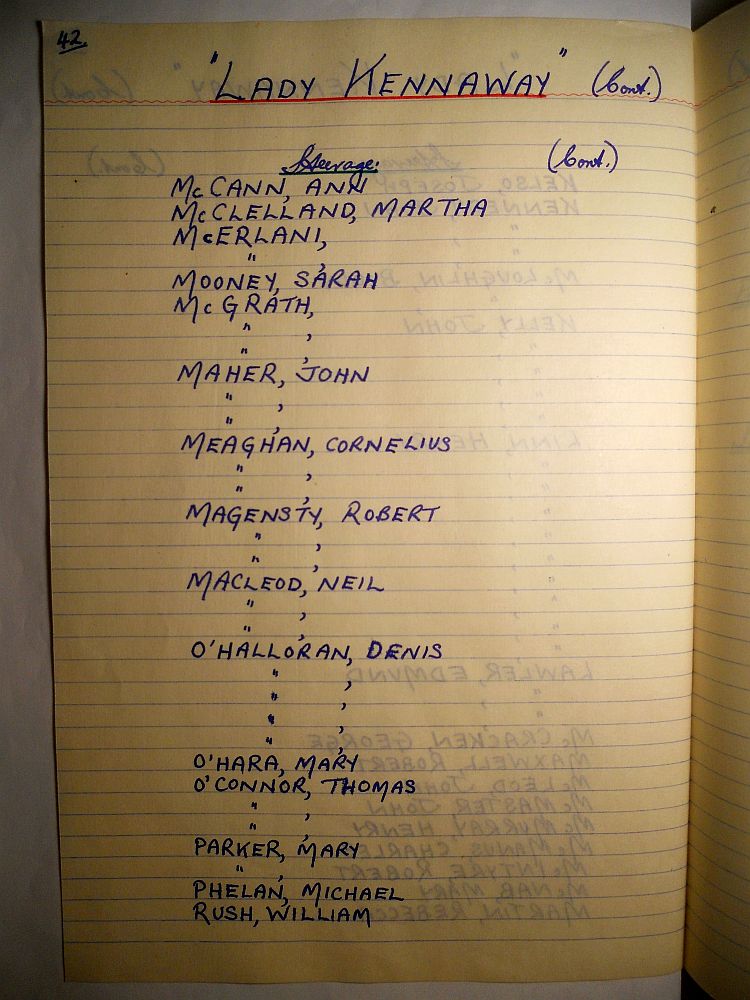 42.
"LADY KENNAWAY" (Cont.)
Steerage: (Cont.)
McCANN, ANN
McCLELLAND, MARTHA
McERLANI,
" ,
MOONEY, SARAH
McGRATH,
" ,
" ,
MAHER, JOHN
" ,
" ,
MEAGHAN, CORNELIUS
" ,
" ,
MAGENSTY, ROBERT
" ,
" ,
MACLEOD, NEIL
" ,
" ,
O'HALLORAN, DENIS
" ,
" ,
" ,
" ,
O'HARA, MARY
O'CONNOR, THOMAS
" ,
" ,
PARKER, MARY
" ,
PHELAN, MICHAEL
RUSH, WILLIAM